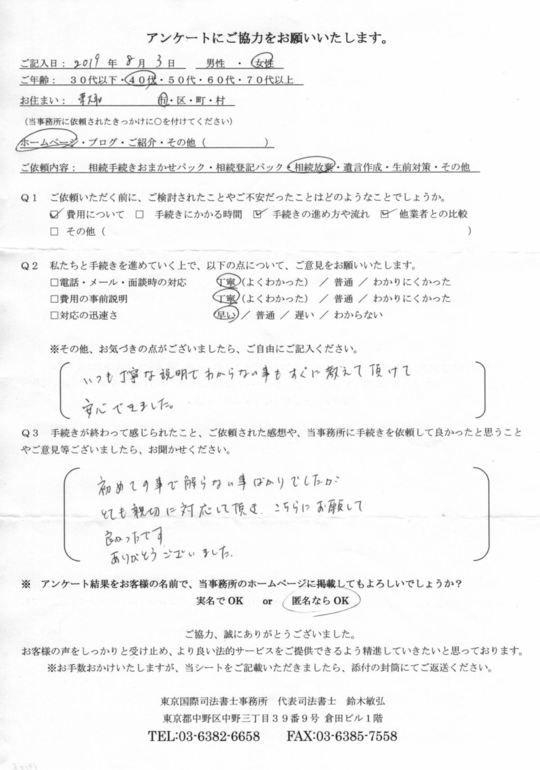 アンケートにご協力をお願いいたします。
ご記入日： 2019 年 8 月 3 日　男性 ・ 女性
ご年齢： 30代以下・40代・50代・60代・70代以上
お住まい： 東大和 市・区・町・村
（当事務所に依頼されたきっかけに〇を付けてください）
ホームページ・ブログ・ご紹介・その他（　　　　）
ご依頼内容： 相続手続きおまかせパック・相続登記パック・相続放棄・遺言作成・生前対策・その他
Q1　ご依頼いただく前に、ご検討されたことやご不安だったことはどのようなことでしょうか。
☑ 費用について □ 手続きにかかる時間 ☑ 手続きの進め方や流れ ☑ 他業者との比較
□ その他（　　　　）
Q2　私たちと手続きを進めていく上で、以下の点について、ご意見をお願いいたします。
□電話・メール・面談時の対応　丁寧（よくわかった） ／ 普通 ／ わかりにくかった
□費用の事前説明　丁寧（よくわかった） ／ 普通 ／ わかりにくかった
□対応の迅速さ　早い ／ 普通 ／ 遅い ／ わからない
※その他、お気づきの点がございましたら、ご自由にご記入ください。
いつも丁寧な説明でわからない事もすぐに教えて頂けて
安心できました。
Q3　手続きが終わって感じられたこと、ご依頼された感想や、当事務所に手続きを依頼して良かったと思うこと
やご意見等ございましたら、お聞かせください。
初めての事で解らない事ばかりでしたが
とても親切に対応して頂き、こちらにお願して
良かったです
ありがとうございました。
※ アンケート結果をお客様の名前で、当事務所のホームページに掲載してもよろしいでしょうか？
実名でOK　or　匿名ならOK
ご協力、誠にありがとうございました。
お客様の声をしっかりと受け止め、より良い法的サービスをご提供できるよう精進していきたいと思っております。
※お手数おかけいたしますが、当シートをご記載いただきましたら、添付の封筒にてご返送ください。
東京国際司法書士事務所　代表司法書士　鈴木敏弘
東京都中野区中野三丁目39番9号 倉田ビル1階
TEL:03-6382-6658　FAX:03-6385-7558